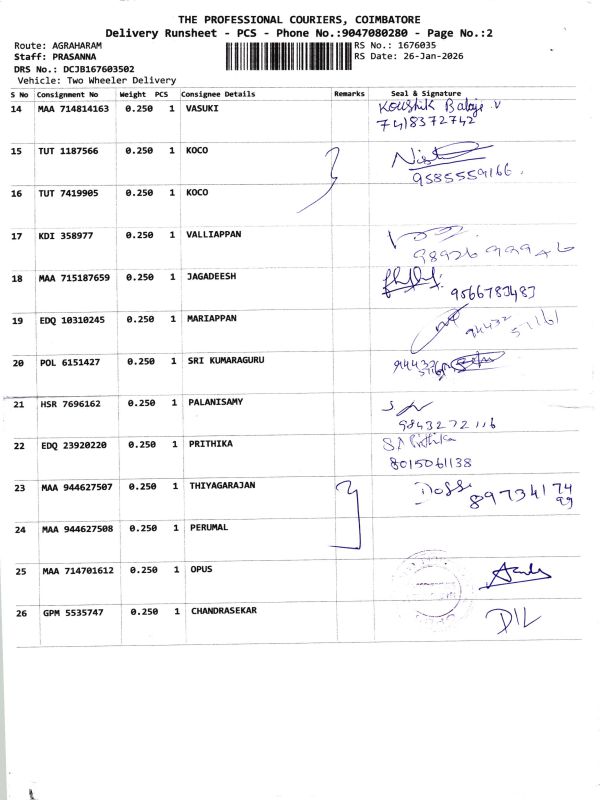 THE PROFESSIONAL COURIERS, COIMBATORE
Delivery Runsheet - PCS - Phone No.:9047080280 - Page No.:2
Route: AGRAHARAM RS No.: 1676035
Staff: PRASANNA RS Date: 26-Jan-2026
DRS No.: DCJB167603502
Vehicle: Two Wheeler Delivery
S No Consignment No Weight PCS Consignee Details Remarks Seal & Signature
14 MAA 714814163 0.250 1 VASUKI Koushik Balaje V
7418372742
15 TUT 1187566 0.250 1 KOCO
9585559166.
16 TUT 7419905 0.250 1 KOCO
17 KDI 358977 0.250 1 VALLIAPPAN
98926 99946
18 MAA 715187659 0.250 1 JAGADEESH
9566783483
19 EDQ 10310245 0.250 1 MARIAPPAN
94432
57161
20 POL 6151427 0.250 1 SRI KUMARAGURU
94432
21 HSR 7696162 0.250 1 PALANISAMY
9843272116
22 EDQ 23920220 0.250 1 PRITHIKA
8015061138
23 MAA 944627507 0.250 1 THIYAGARAJAN
89734174
99
24 MAA 944627508 0.250 1 PERUMAL
25 MAA 714701612 0.250 1 OPUS
26 GPM 5535747 0.250 1 CHANDRASEKAR DIL